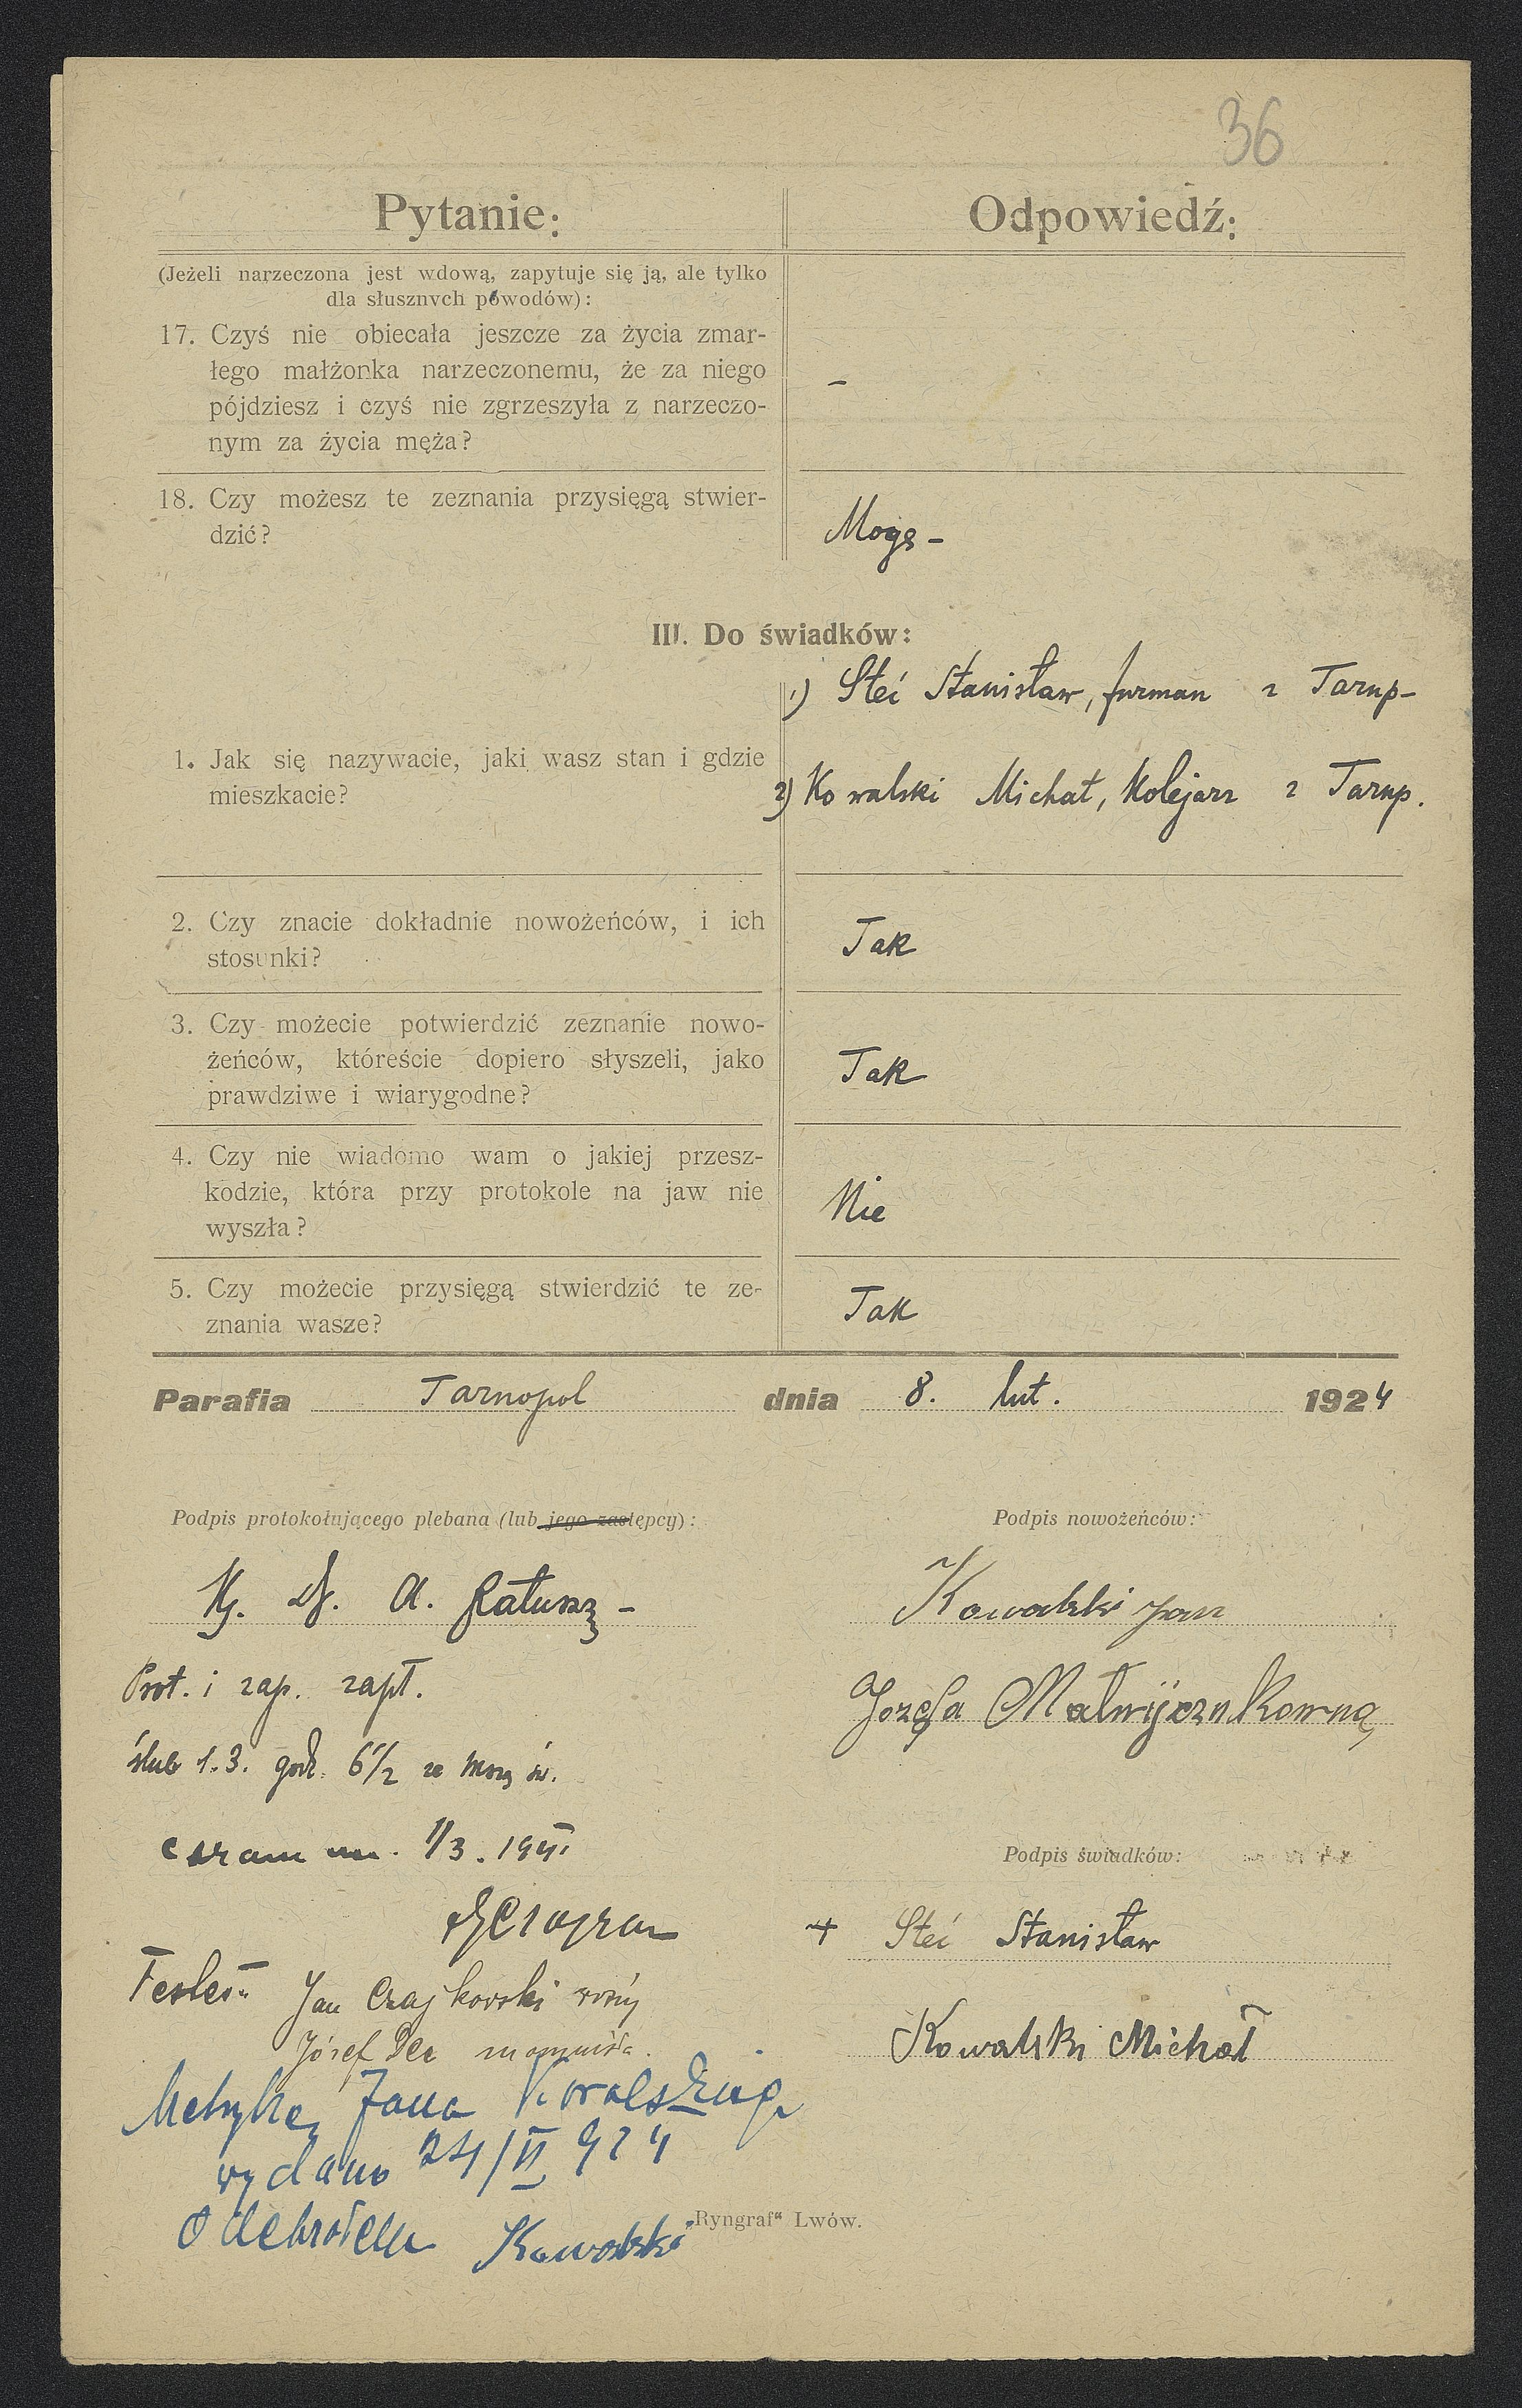 36
Pytanie:
Odpowiedź:
(Jeżeli narzeczona jest wdową, zapytuje się ją, ale tylko
dla słusznych powodów):
17. Czyś nie obiecała jeszcze za życia zmar-
łego małżonka narzeczonemu, że za niego
pójdziesz i czyś nie zgrzeszyła z narzeczo-
nym za życia męża?
-
18. Czy możesz te zeznania przysięgą stwier-
dzić?
Mogę -
III. Do świadków:
1. Jak się nazywacie, jaki wasz stan i gdzie
mieszkacie?
1) Steć Stanisław, furman z Tarnp-
2) Kowalski Michał, Kolejarz z Tarnp.
2. Czy znacie dokładnie nowożeńców, i ich
stosunki?
Tak
3. Czy możecie potwierdzić zeznanie nowo-
żeńców, któreście dopiero słyszeli, jako
prawdziwe i wiarygodne?
Tak
4. Czy nie wiadomo wam o jakiej przesz-
kodzie, która przy protokole na jaw nie
wyszła?
Nie
5. Czy możecie przysięgą stwierdzić te ze-
znania wasze?
Tak
Parafia Tarnopol dnia 8. lut. 1924
Podpis protokołującego plebana (lub jego zastępcy):
A. Ratusz
Prot. i zap. zapł.
ślub 1.3. godz. 6 1/2 ze mszą św.
coram 1/3. 19
Testes: Jan Czajkowski
Józef Dec
Metrykę Jana Kowalskiego
wydano 24/II 924
Odebrałem Kowalski
Podpis nowożeńców:
Kowalski Jan
Józefa Matwijczukówna
Podpis świadków:
+ Steć Stanisław
Kowalski Michał
„Ryngraf“ Lwów.